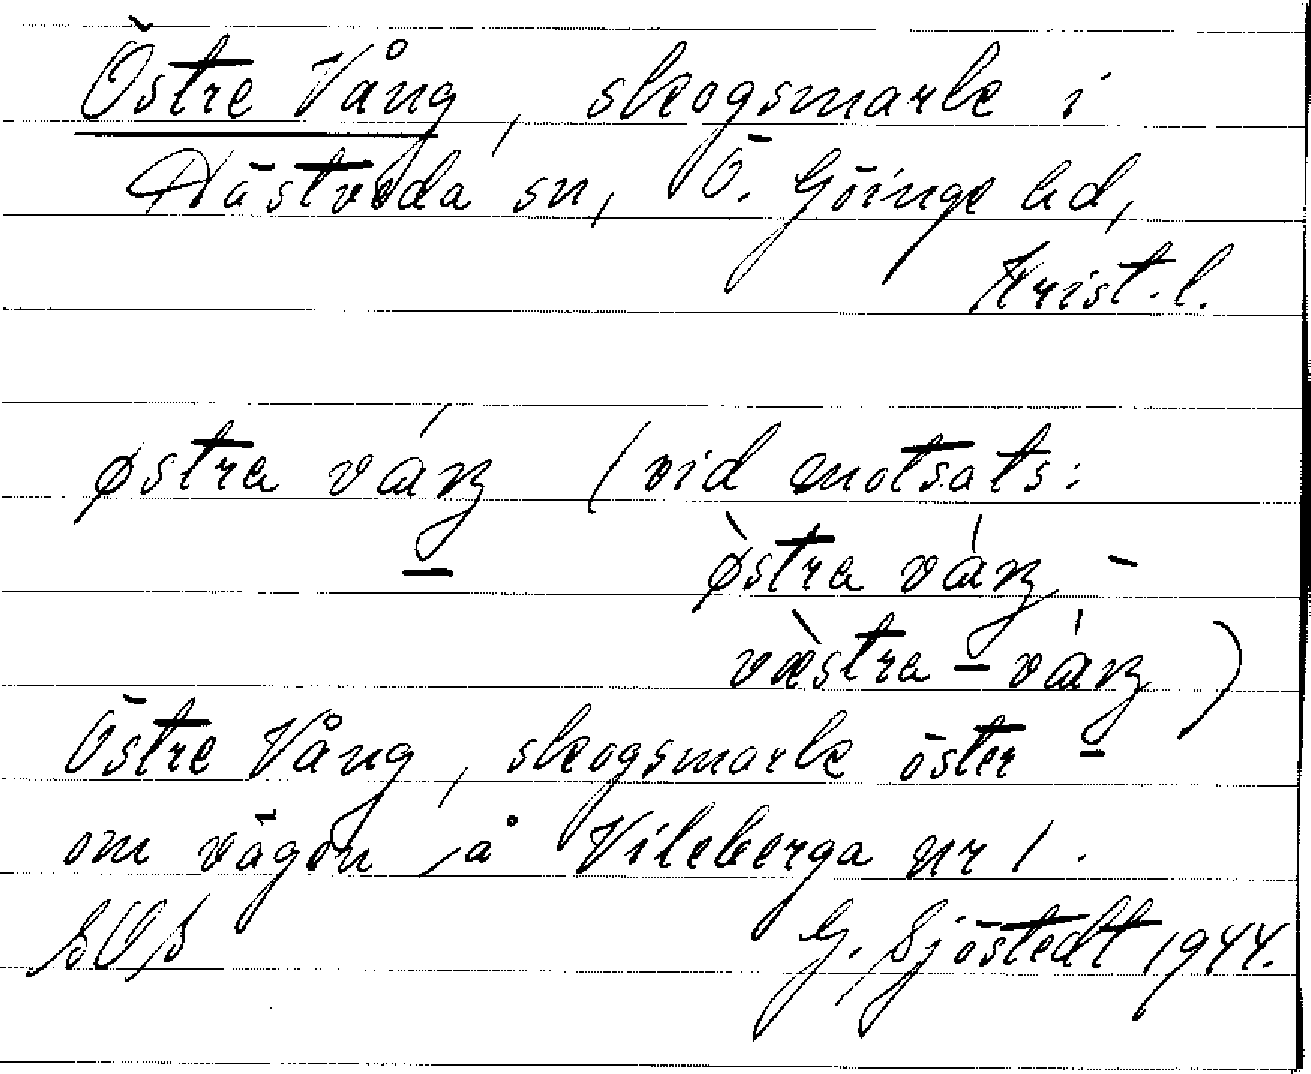 Östre Vång, skogsmark i
Hästveda sn, Ö. Göinge hd,
Krist. l.
østra váŋ (vid motsats:
østra váŋ -
væstra - váŋ)
Östre Vång, skogsmark öster
om vägen, å Vileberga nr 1.
G. Sjöstedt 1944.